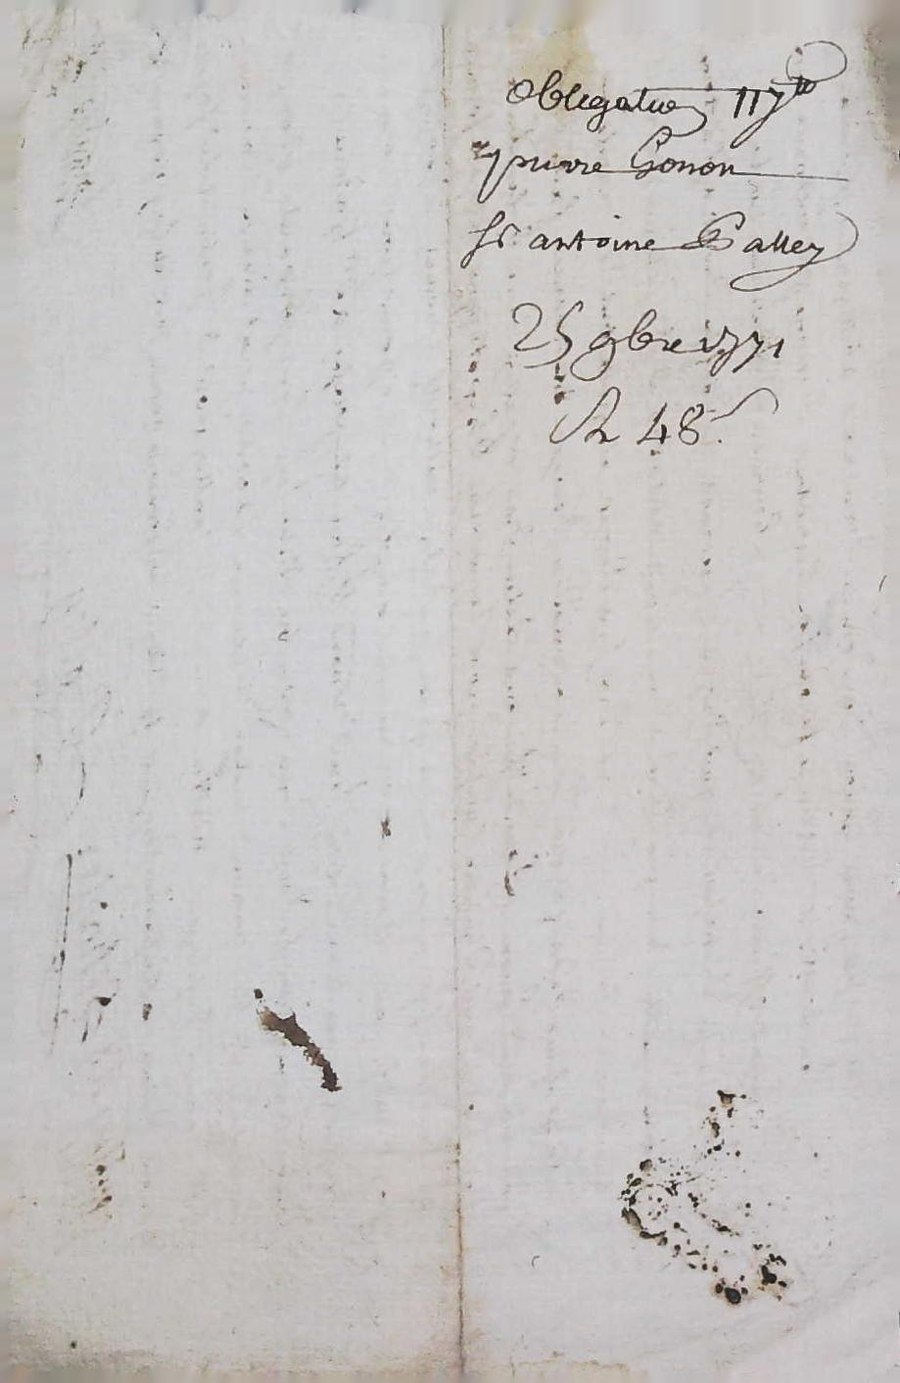 obligation 117ᵗᵗ
pierre Gonon
Sr antoine Palley
25 9bre 1771
R 48ˢ